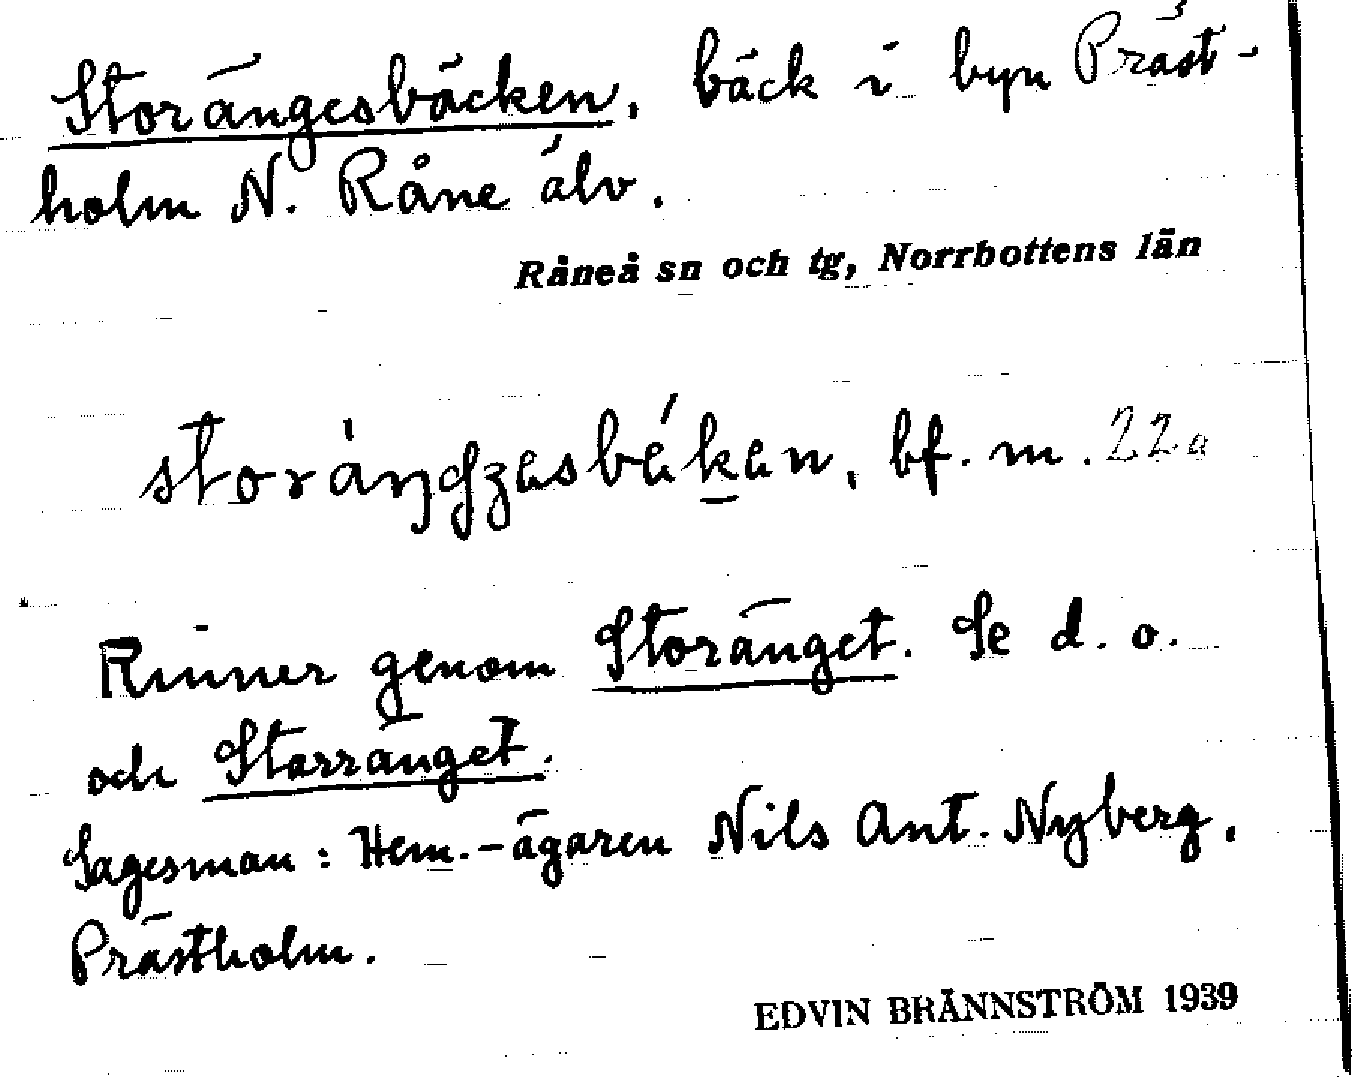 Storängesbäcken, bäck i byn Präst-
holm N. Råne älv.
Råneå sn och tg, Norrbottens län
bf. m. 22a
Rinner genom Storänget. Se d. o.
och Storränget.
Sagesman: Hem.-ägaren Nils Ant. Nyberg,
Prästholm.
EDVIN BRÄNNSTRÖM 1939